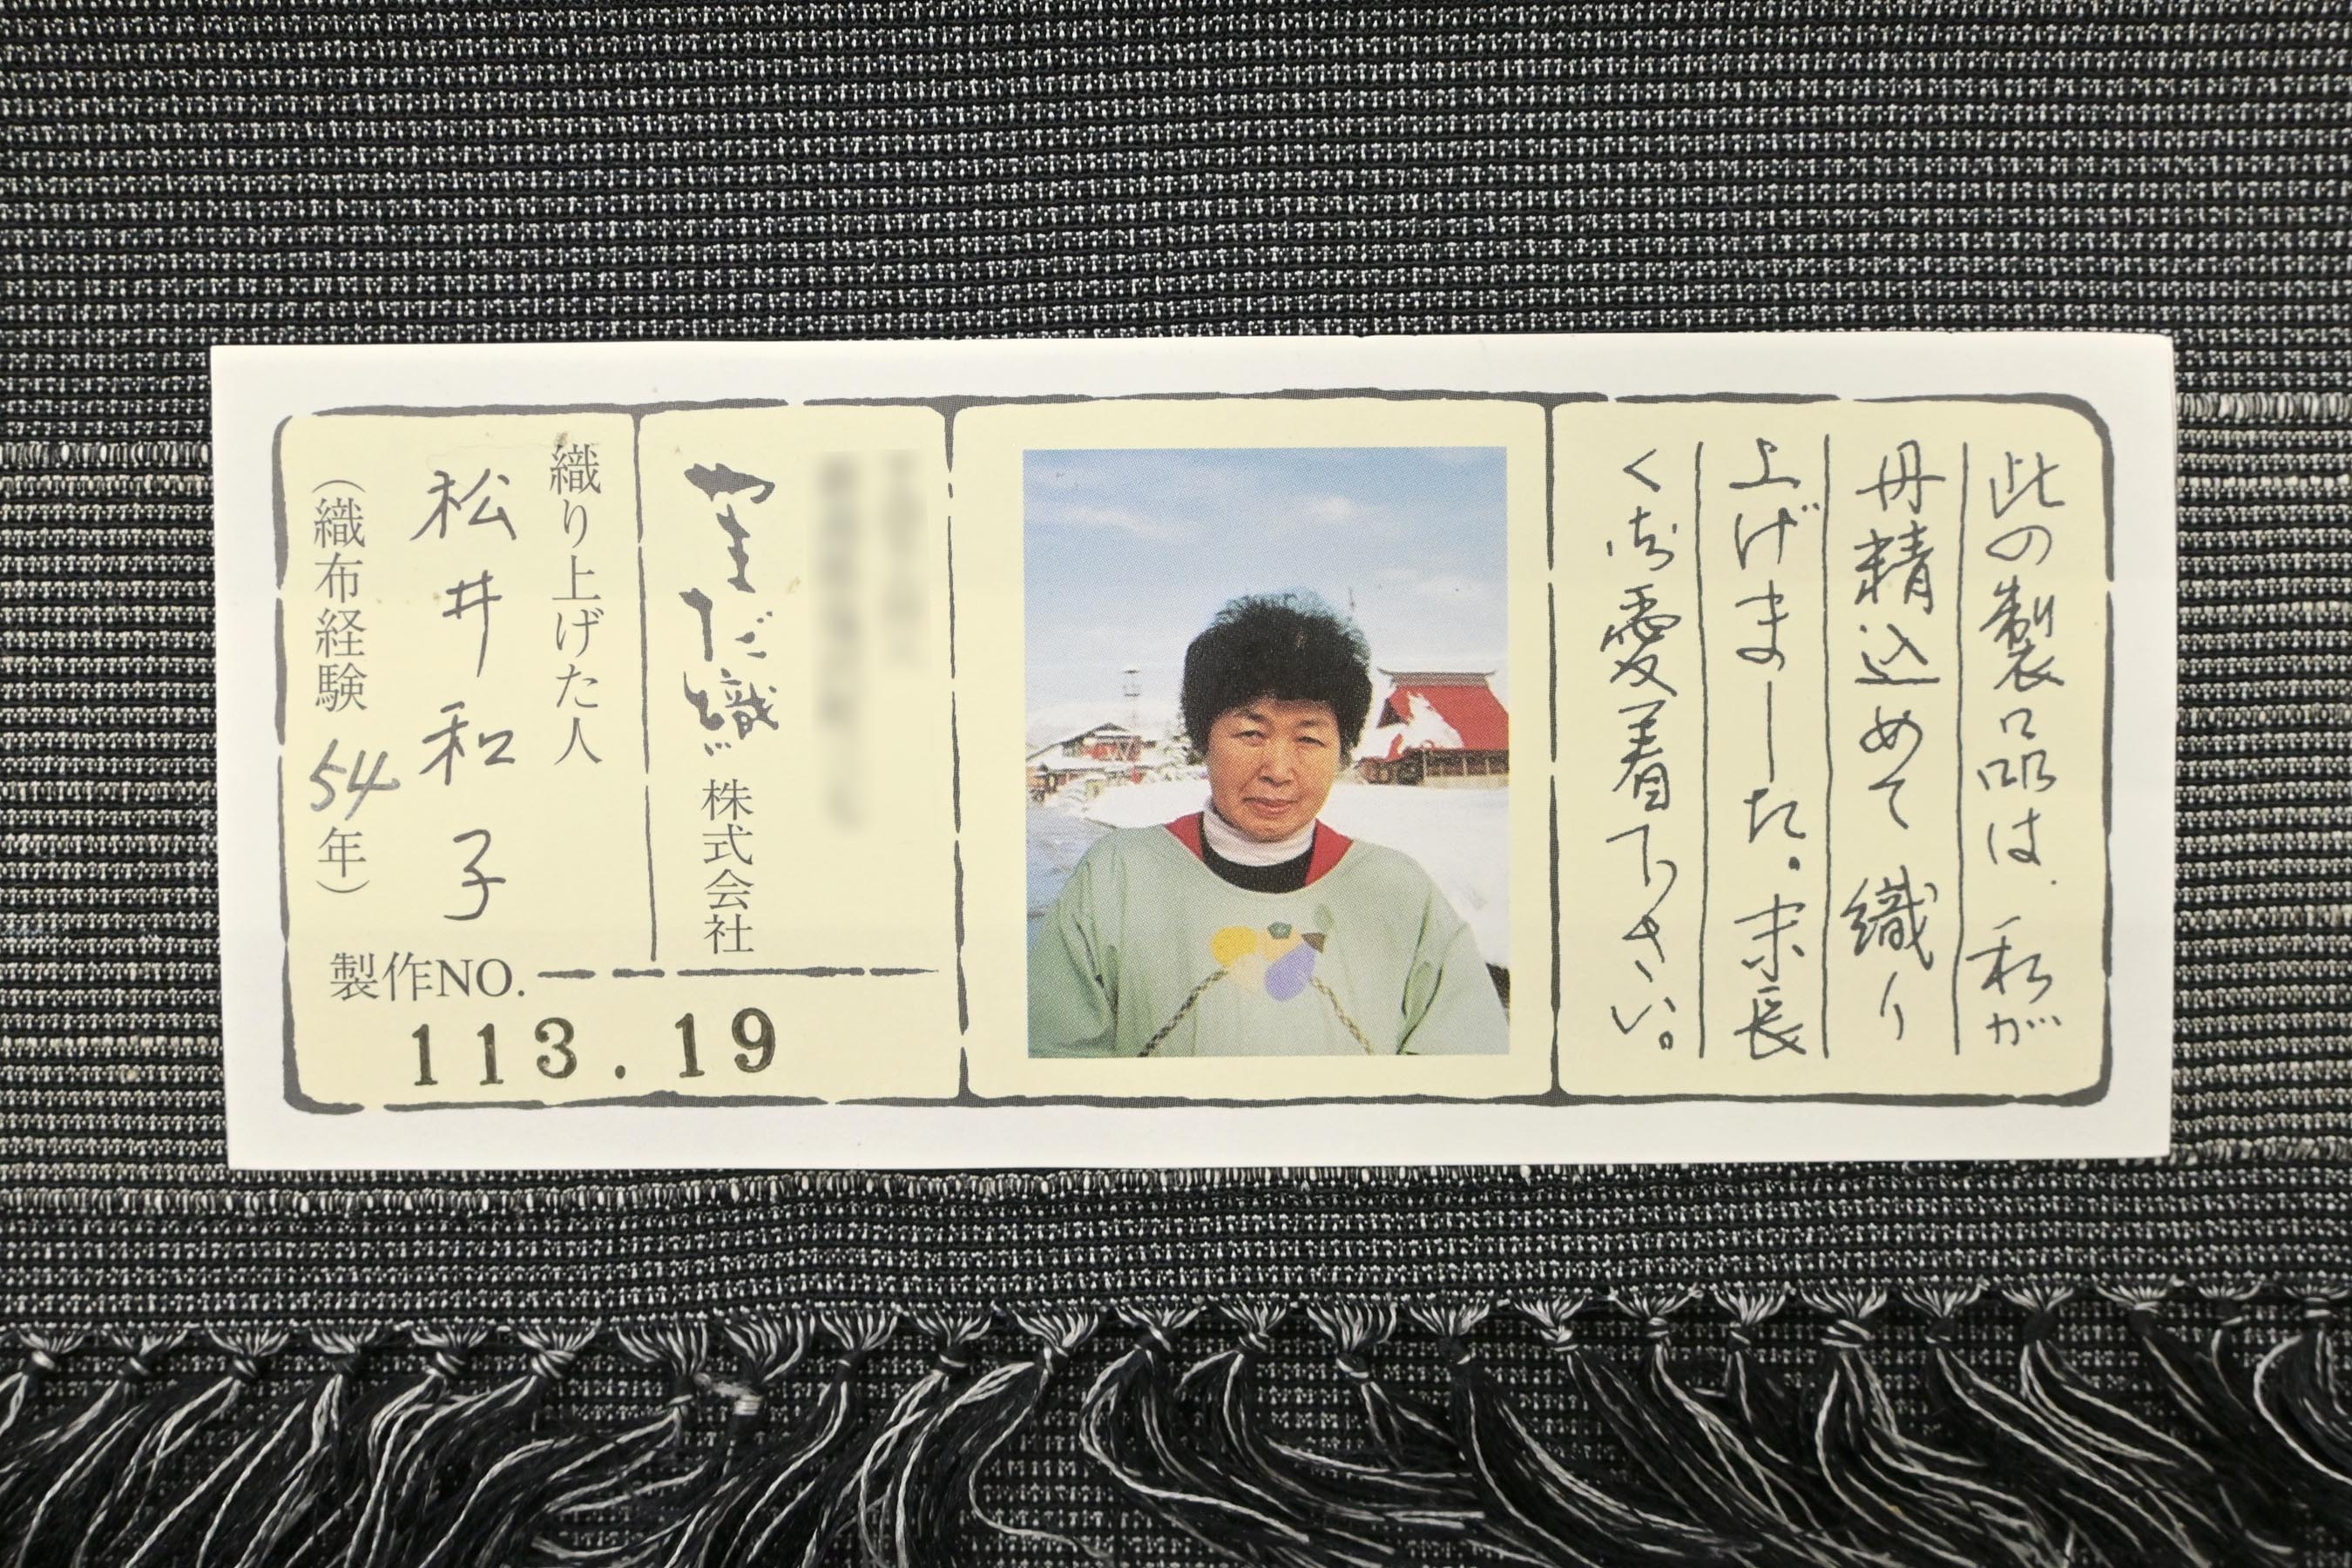 此の製品は、私が
丹精込めて織り
上げました。末長
く御愛着下さい。
やまだ織
株式会社
織り上げた人
松井和子
（織布経験 54年）
製作NO.
113.19